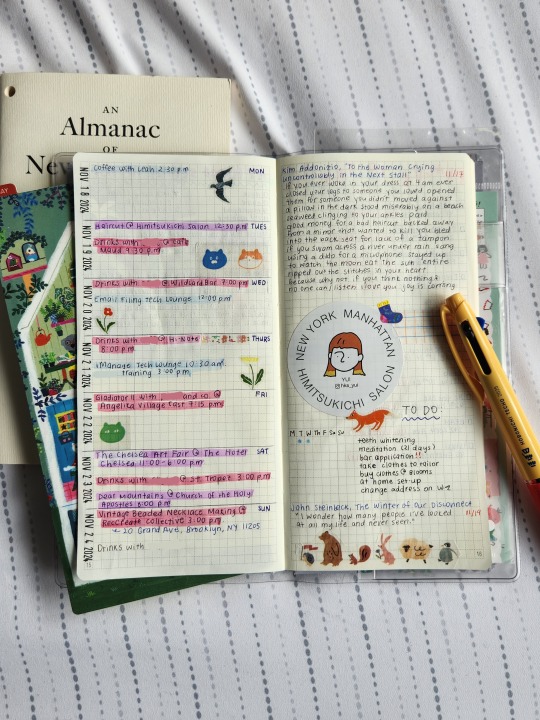 AN
Almanac
OF
New
NOV 18 2024
MON
Coffee with Leah 2:30 pm
NOV 19 2024
Haircut @ Himitsukichi Salon 12:30 pm
TUES
Drinks with @ Cafe
Maud 4:30 pm
NOV 20 2024
Drinks with @ Wildland Bar 7:00 pm
WED
Email Filing Tech Lounge 12:00 pm
NOV 21 2024
Drinks with @ Hi-Note
THURS
8:00 pm
iManage Tech Lounge 10:30 am
Training 3:00 pm
NOV 22 2024
Gladiator II with and co @
FRI
Angelika Village East 7:15 pm
NOV 23 2024
The Chelsea Art Fair @ The Hotel
SAT
Chelsea 11:00-6:00 pm
Drinks with @ St. Tropez 3:00 pm
NOV 24 2024
Dear Mountains @ Church of the Holy
SUN
Apostles 6:00 pm
Vintage Beaded Necklace Making @
RecCreate Collective 3:00 pm
20 Grand Ave, Brooklyn, NY 11205
Drinks with
Kim Addonizio, "To the Woman Crying
Uncontrollably in the Next Stall"
11/17
If you ever woke in your dress at 4am ever
closed your legs to someone you loved opened
them for someone you didn't moved against
a pillow in the dark stood miserably on a beach
seaweed clinging to your ankles paid
good money for a bad haircut backed away
from a mirror that wanted to kill you bled
into the back seat for lack of a tampon
if you swam across a river under rain sang
using a dildo for a microphone stayed up
to watch the moon eat the sun entire
ripped out the stitches in your heart
because why not if you think nothing &
no one can / listen I love you joy is coming.
NEW YORK MANHATTAN
YUI
HIMITSUKICHI SALON
TO DO:
M T W Th F Sa Su
teeth whitening
meditation (21 days)
bar application!!
take clothes to tailor
buy clothes @ Blooms
at home set-up
change address on W-2
John Steinbeck, The Winter of Our Discontent
"I wonder how many people I've looked
11/19
at all my life and never seen."